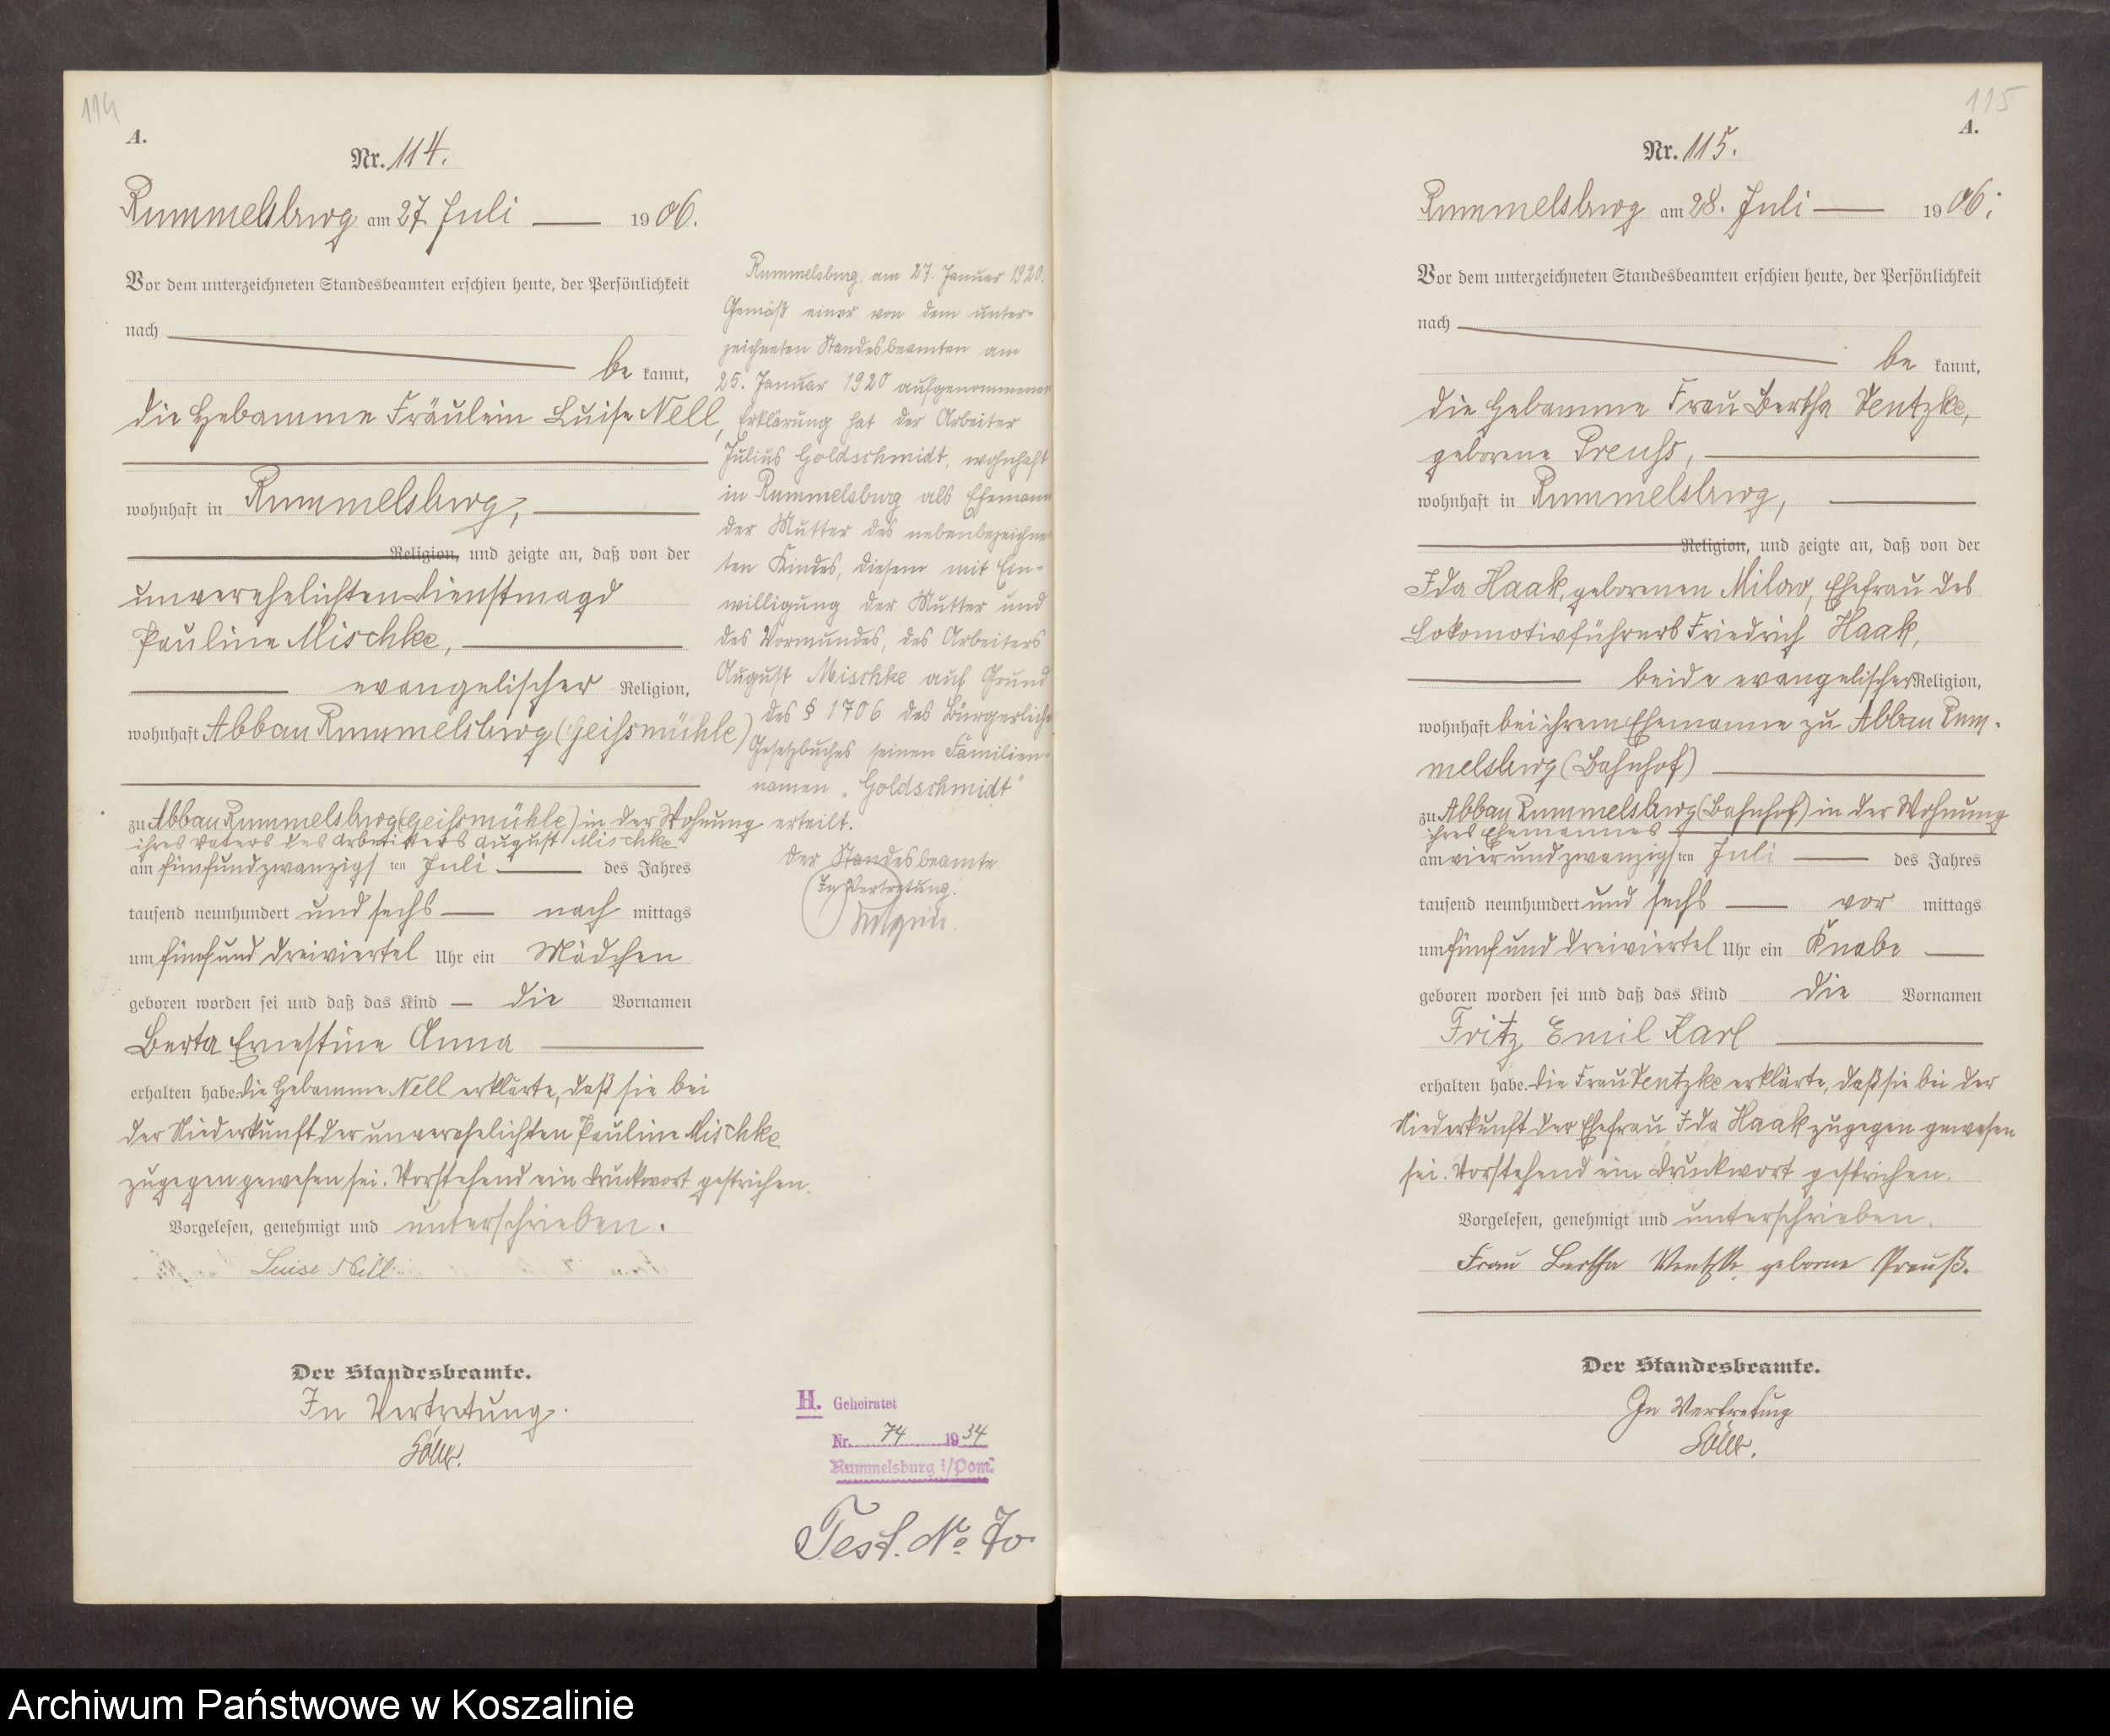 114
A.
Nr. 114.
Rummelsburg am 27. Juli 1906.
Vor dem unterzeichneten Standesbeamten erschien heute, der Persönlichkeit
nach
be kannt,
die Hebamme Fräulein Luise Nell,
wohnhaft in Rummelsburg,
Religion, und zeigte an, daß von der
unverehelichten Dienstmagd
Pauline Mischke,
evangelischer Religion,
wohnhaft Abbau Rummelsburg (Geißmühle)
zu Abbau Rummelsburg (Geißmühle) in der Wohnung
ihres Vaters des Arbeiters August Mischke
am fünfundzwanzigs ten Juli des Jahres
tausend neunhundert und sechs nach mittags
um fünf und dreiviertel Uhr ein Mädchen
geboren worden sei und daß das Kind die Vornamen
Berta Ernestine Anna
erhalten habe. Die Hebamme Nell erklärte, daß sie bei
der Niederkunft der unverehelichten Pauline Mischke
zugegen gewesen sei. Vorstehend ein Druckwort gestrichen.
Vorgelesen, genehmigt und unterschrieben.
Luise Nell
Der Standesbeamte.
In Vertretung.
Rummelsburg, am 27. Januar 1920.
Gemäß einer von dem unter-
zeichneten Standesbeamten am
25. Januar 1920 aufgenommenen
Erklärung hat der Arbeiter
Julius Goldschmidt, wohnhaft
in Rummelsburg als Ehemann
der Mutter des nebenbezeichne
ten Kindes, diesem mit Ein-
willigung der Mutter und
des Vormundes, des Arbeiters
August Mischke auf Grund
des § 1706 des Bürgerliche
Gesetzbuches seinen Familien-
namen "Goldschmidt"
erteilt.
Der Standesbeamte
In Vertretung.
H. Geheiratet
Nr. 74 1934
Rummelsburg i/Pom.
Test. No 70
115
A.
Nr. 115.
Rummelsburg am 28. Juli 1906.
Vor dem unterzeichneten Standesbeamten erschien heute, der Persönlichkeit
nach
be kannt,
die Hebamme Frau Bertha Ventzke,
geborene Preuß,
wohnhaft in Rummelsburg,
Religion, und zeigte an, daß von der
Ida Haak, geborenen Milow, Ehefrau des
Lokomotivführers Friedrich Haak,
beide evangelischer Religion,
wohnhaft bei ihrem Ehemanne zu Abbau Rum-
melsburg (Bahnhof)
zu Abbau Rummelsburg (Bahnhof) in der Wohnung
ihres Ehemannes
am vierundzwanzigs ten Juli des Jahres
tausend neunhundert und sechs vor mittags
um fünf und dreiviertel Uhr ein Knabe
geboren worden sei und daß das Kind die Vornamen
Fritz Emil Karl
erhalten habe. Die Frau Ventzke erklärte, daß sie bei der
Niederkunft der Ehefrau Ida Haak zugegen gewesen
sei. Vorstehend ein Druckwort gestrichen.
Vorgelesen, genehmigt und unterschrieben.
Frau Bertha Ventzke geborne Preuß.
Der Standesbeamte.
In Vertretung
Archiwum Państwowe w Koszalinie